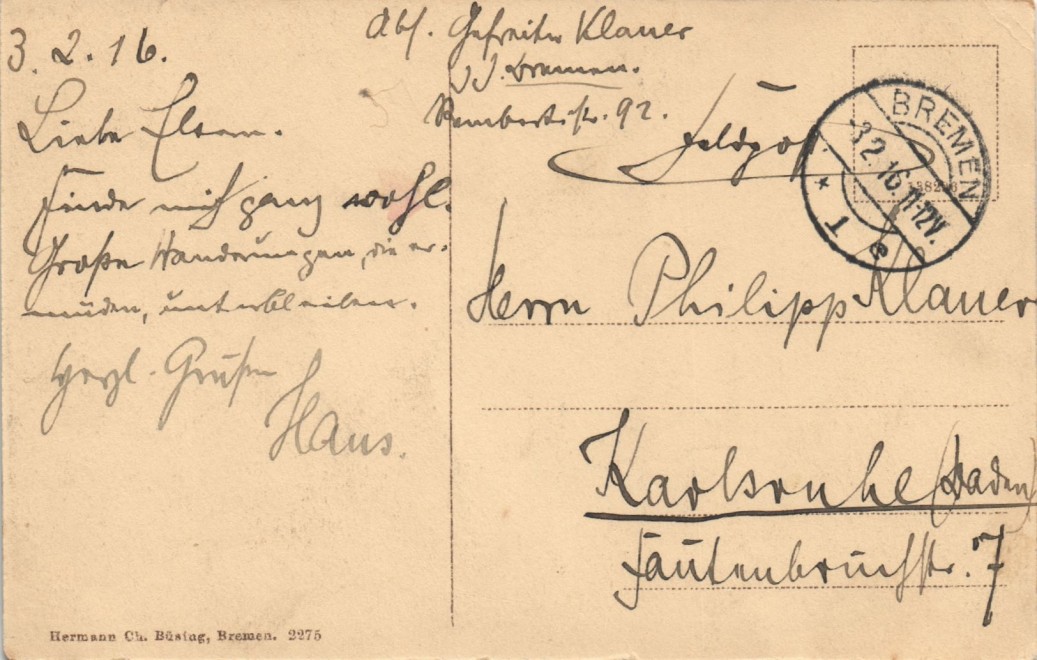 3. 2. 16.
Abs. Gefreiter Klauer
z. Z. Bremen.
Rembertistr. 92.
Feldpost
BREMEN
3 2.16.11-12V.
* T e
Liebe Eltern.
Finde mich ganz wohl.
Große Wanderungen, die er-
müden, unterbleiben.
Herzl. Grüße
Hans.
Herrn Philipp Klauer
Karlsruhe (Baden)
Lautenbruchstr. 7
Hermann Ch. Büsing, Bremen. 2275